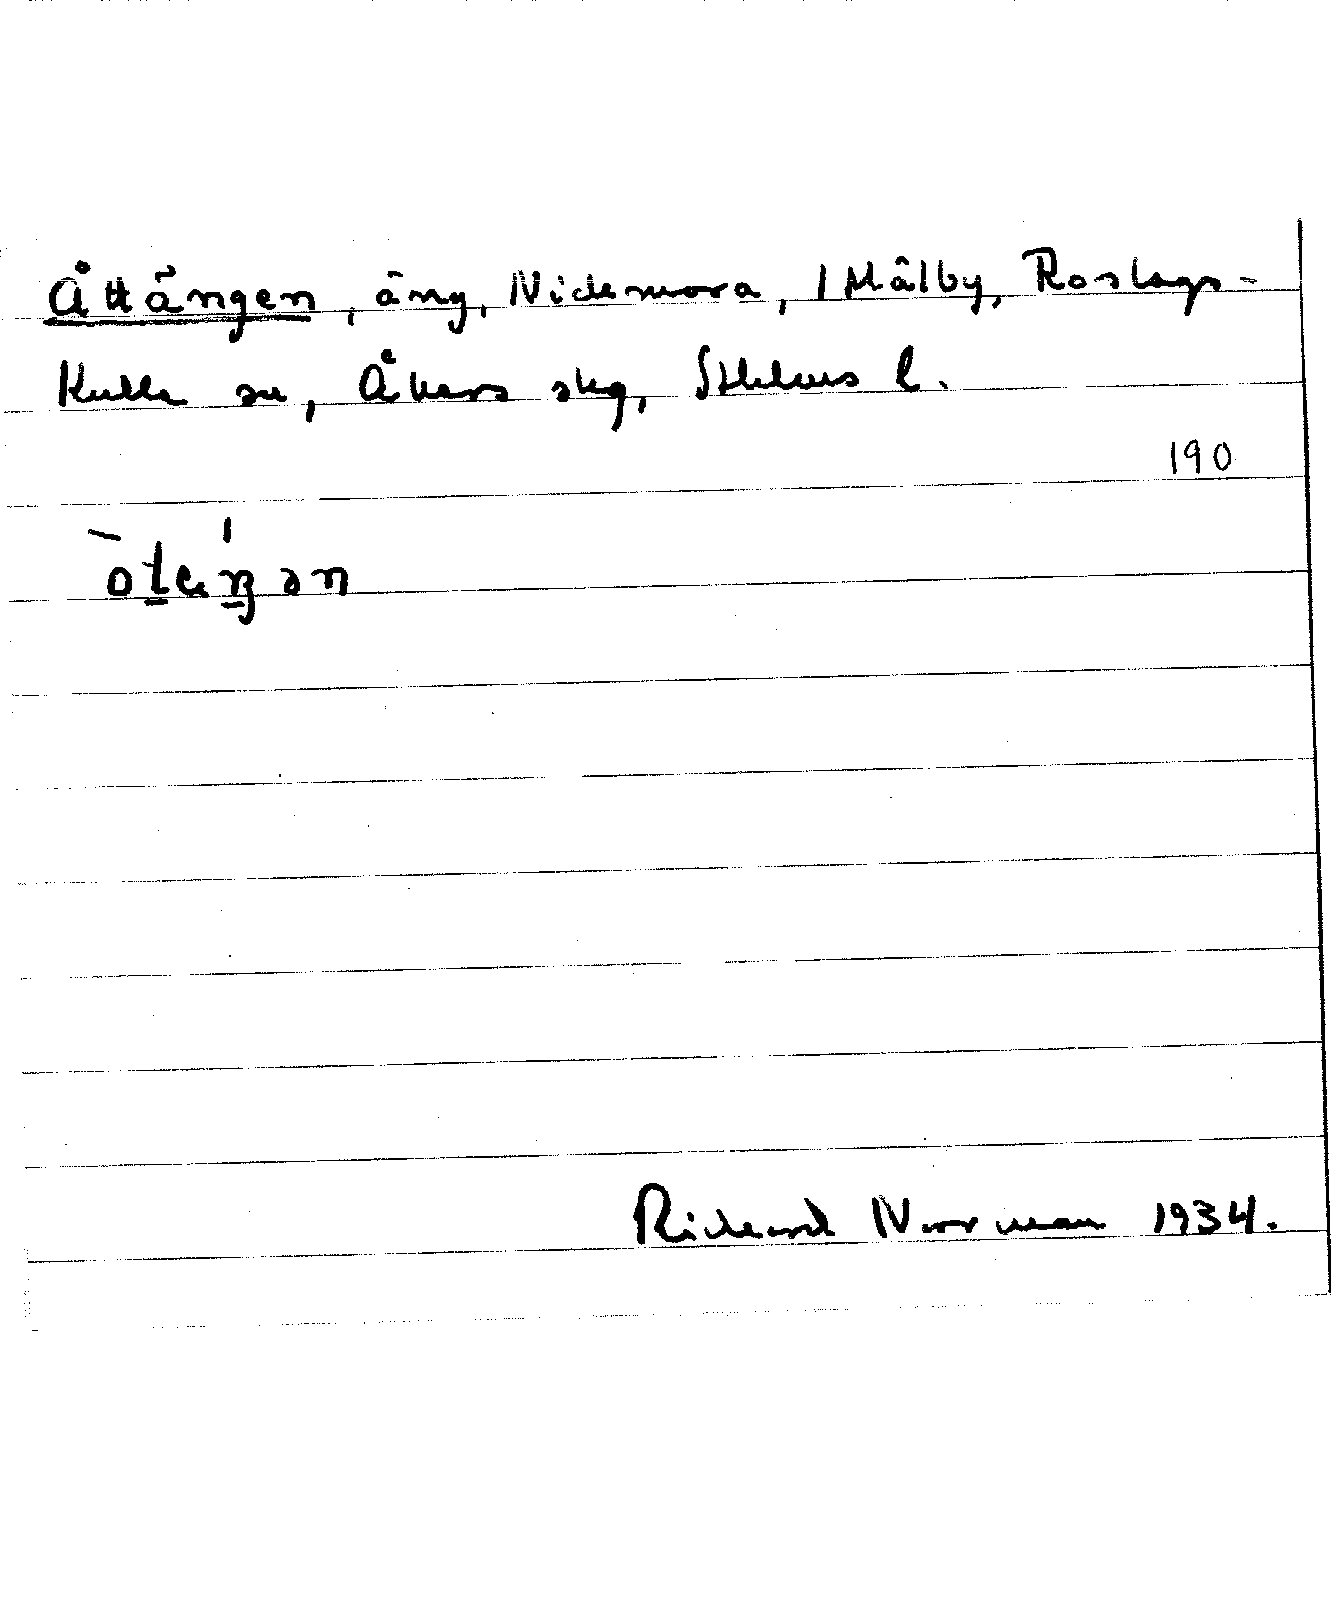 Åttängen, äng, Nidemora, 1 Målby, Roslags-
Kulla sn, Åkers skg, Sthlms l.
190
òtäŋən
Richard Norrman 1934.